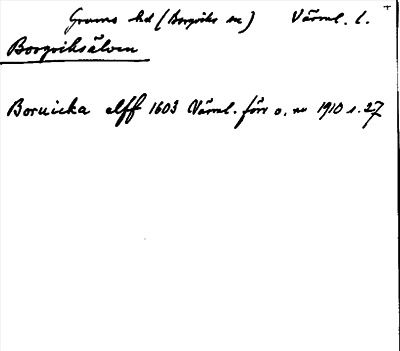 Grums hd (Borgviks sn) Värml. l.
Borgviksälven
Boruicka elff 1603 Värml. förr o. nu 1910 s. 27